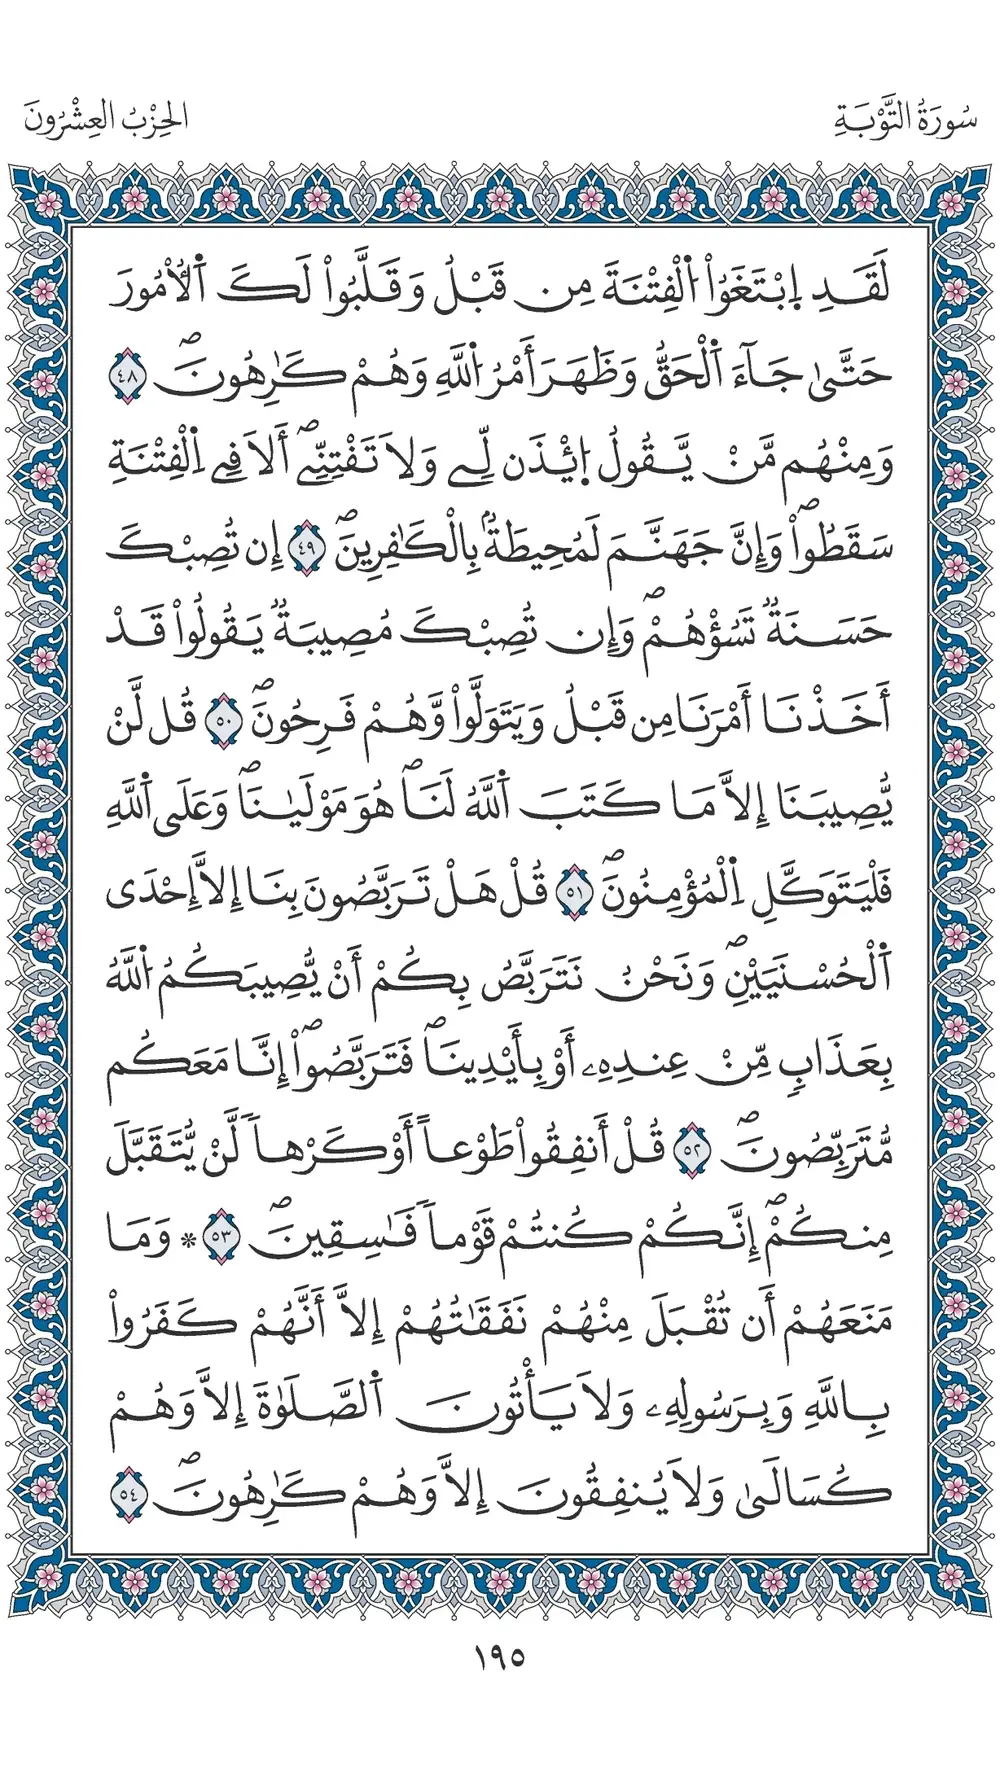 سُورَةُ التَّوْبَةِ
الحِزْبُ العِشْرُونَ
لَقَدِ اِبْتَغَوُاْ اُلْفِتْنَةَ مِن قَبْلُ وَقَلَّبُواْ لَكَ اَلْأُمُورَ
حَتَّىٰ جَآءَ اَلْحَقُّ وَظَهَرَ أَمْرُ اُللَّهِ وَهُمْ كَٰرِهُونَۖ ٤٨
وَمِنْهُم مَّنْ يَّقُولُ اُ۪ئْذَن لِّے وَلَا تَفْتِنِّےۖ أَلَا فِے اِلْفِتْنَةِ
سَقَطُواْۖ وَإِنَّ جَهَنَّمَ لَمُحِيطَةُۢ بِالْكَٰفِرِينَۖ ٤٩ إِن تُصِبْكَ
حَسَنَةٞ تَسُؤْهُمْۖ وَإِن تُصِبْكَ مُصِيبَةٞ يَقُولُواْ قَدْ
أَخَذْنَا أَمْرَنَا مِن قَبْلُ وَيَتَوَلَّواْ وَّهُمْ فَرِحُونَۖ ٥٠ قُل لَّنْ
يُّصِيبَنَا إِلَّا مَا كَتَبَ اَللَّهُ لَنَاۖ هُوَ مَوْلَيٰنَاۖ وَعَلَى اَللَّهِ
فَلْيَتَوَكَّلِ اِلْمُؤْمِنُونَۖ ٥١ قُلْ هَلْ تَرَبَّصُونَ بِنَا إِلَّا إِحْدَى
اَلْحُسْنَيَيْنِۖ وَنَحْنُ نَتَرَبَّصُ بِكُمْ أَنْ يُّصِيبَكُمُ اُللَّهُ
بِعَذَابٖ مِّنْ عِندِهِۦ أَوْ بِأَيْدِينَاۖ فَتَرَبَّصُواْۖ إِنَّا مَعَكُم
مُّتَرَبِّصُونَۖ ٥٢ قُلْ أَنفِقُواْ طَوْعاً أَوْ كَرْهاٗ لَّنْ يُّتَقَبَّلَ
مِنكُمْۖ إِنَّكُمْ كُنتُمْ قَوْماٗ فَٰسِقِينَۖ ٥٣ * وَمَا
مَنَعَهُمْ أَن تُقْبَلَ مِنْهُمْ نَفَقَٰتُهُمْ إِلَّا أَنَّهُمْ كَفَرُواْ
بِاللَّهِ وَبِرَسُولِهِۦ وَلَا يَأْتُونَ اَلصَّلَوٰةَ إِلَّا وَهُمْ
كُسَالَىٰ وَلَا يُنفِقُونَ إِلَّا وَهُمْ كَٰرِهُونَۖ ٥٤
١٩٥